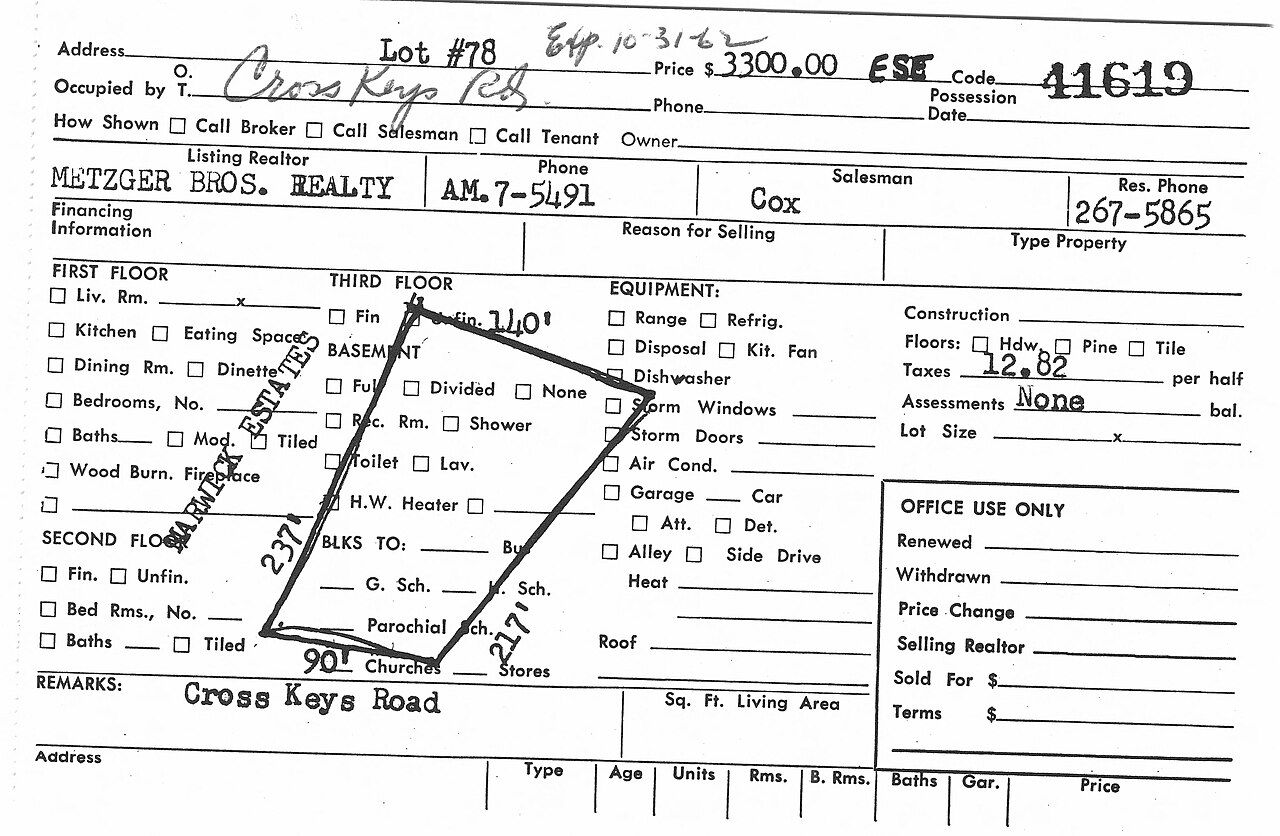 Address Lot #78 Exp. 10-31-62 Price $ 3300.00 ESE Code 41619
Occupied by O. T. Cross Keys Rd. Phone Possession Date
How Shown Call Broker Call Salesman Call Tenant Owner
Listing Realtor Phone Salesman Res. Phone
METZGER BROS. REALTY AM.7-5491 Cox 267-5865
Financing Information Reason for Selling Type Property
FIRST FLOOR
Liv. Rm. x
Kitchen Eating Space
Dining Rm. Dinette
Bedrooms, No.
Baths Mod. Tiled
Wood Burn. Fireplace
SECOND FLOOR
Fin. Unfin.
Bed Rms., No.
Baths Tiled
MARWICK ESTATES
THIRD FLOOR
Fin Unfin. 140'
BASEMENT
Full Divided None
Rec. Rm. Shower
Toilet Lav.
H.W. Heater
237'
BLKS TO: Bus
G. Sch. H. Sch.
Parochial Sch. 217'
90' Churches Stores
EQUIPMENT:
Range Refrig.
Disposal Kit. Fan
Dishwasher
Storm Windows
Storm Doors
Air Cond.
Garage Car
Att. Det.
Alley Side Drive
Heat
Roof
Construction
Floors: Hdw. Pine Tile
Taxes 12.82 per half
Assessments None bal.
Lot Size x
OFFICE USE ONLY
Renewed
Withdrawn
Price Change
Selling Realtor
Sold For $
Terms $
REMARKS: Cross Keys Road
Sq. Ft. Living Area
Address Type Age Units Rms. B. Rms. Baths Gar. Price